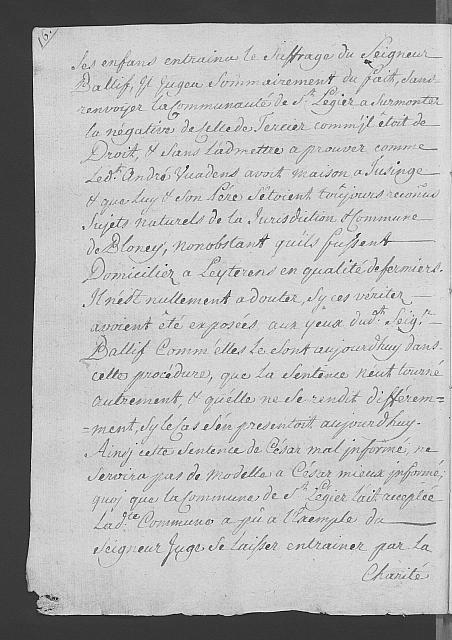 16.
ses enfans entraina le Suffrage du Seigneur
Ballif, Il Jugea Sommairement du fait, sans
renvoyer la Communauté de St. Legier a Surmonter
la négative de celle de Tercier comm'jl étoit de
Droit, & sans l'admettre a prouver comme
led.t André Vuadens avoit maison a Jusinge
& que Luy & son Pére s'étoient toujours reconus
Sujets naturels de la Jurisdiction & Commune
de Bloney, nonobstant qu'ils fussent
Domiciliez a Leyterens en qualité de fermiers.
Il n'est nullement a douter, Sy ces véritez
avoient êté exposées, aux yeux dud.t Seig.r
Ballif Comm'elles le sont aujourd'huy dans
cette procédure, que la Sentence n'eut tourné
autrement & qu'elle ne se rendit différem=
=ment, Sy le Cas s'en presentoit aujourd'huy.
Ainsj cette Sentence de César mal jnformé, ne
servira pas de modelle a César mieux jnformé;
quoj que la Commune de St. Legier l'ait acceptée
Lad.te Commune a pû a l'Exemple du
Seigneur Juge se laisser entrainer par la
Charité